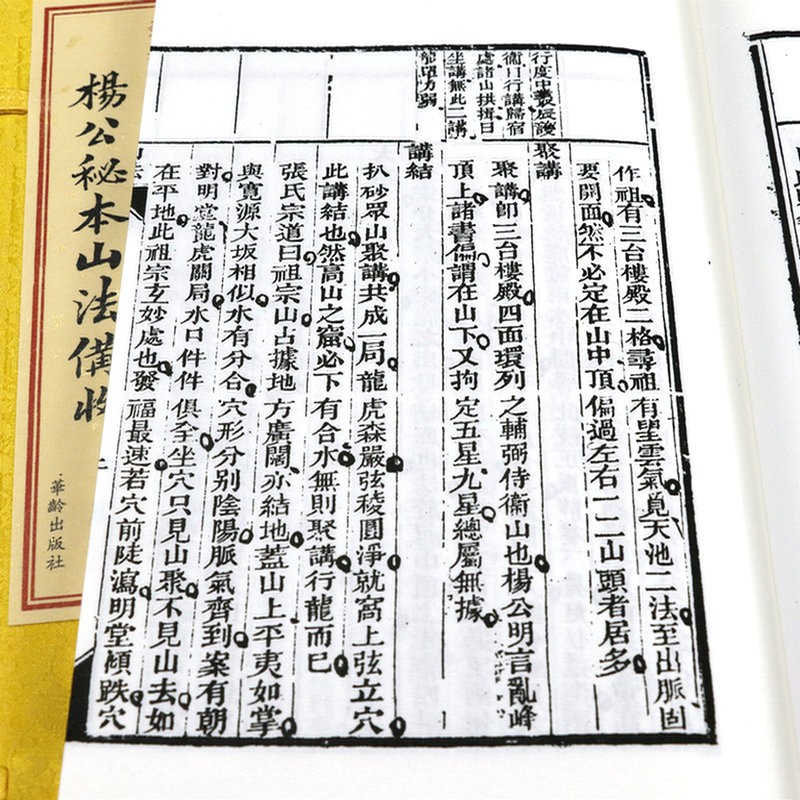 楊公秘本山法備收
華齡出版社
行度中
行講歸宿
處諸山拱揖日
坐講無此二講
力弱
作祖有三台樓殿二格尋祖有望雲氣覓天池二法至出脈固
要開面然不必定在山中頂偏過左右一二山頭者居多
聚講
聚講即三台樓殿四面環列之輔弼侍衞山也楊公明言亂峰
頂上諸書偏謂在山下又拘定五星九星總屬無據
講結
扒砂眾山聚講共成一局龍虎森嚴弦稜圓淨就窩上弦立穴
此講結也然高山之窟必下有合水無則聚講行龍而已
張氏宗道曰祖宗山占據地方廣闊亦結地蓋山上平夷如掌
與寬源大坂相似水有分合穴形分別陰陽脈氣齊到案有朝
對明堂龍虎關局水口件件俱全坐穴只見山聚不見山去如
在平地此祖宗玄妙處也發福最速若穴前陡瀉明堂傾跌穴